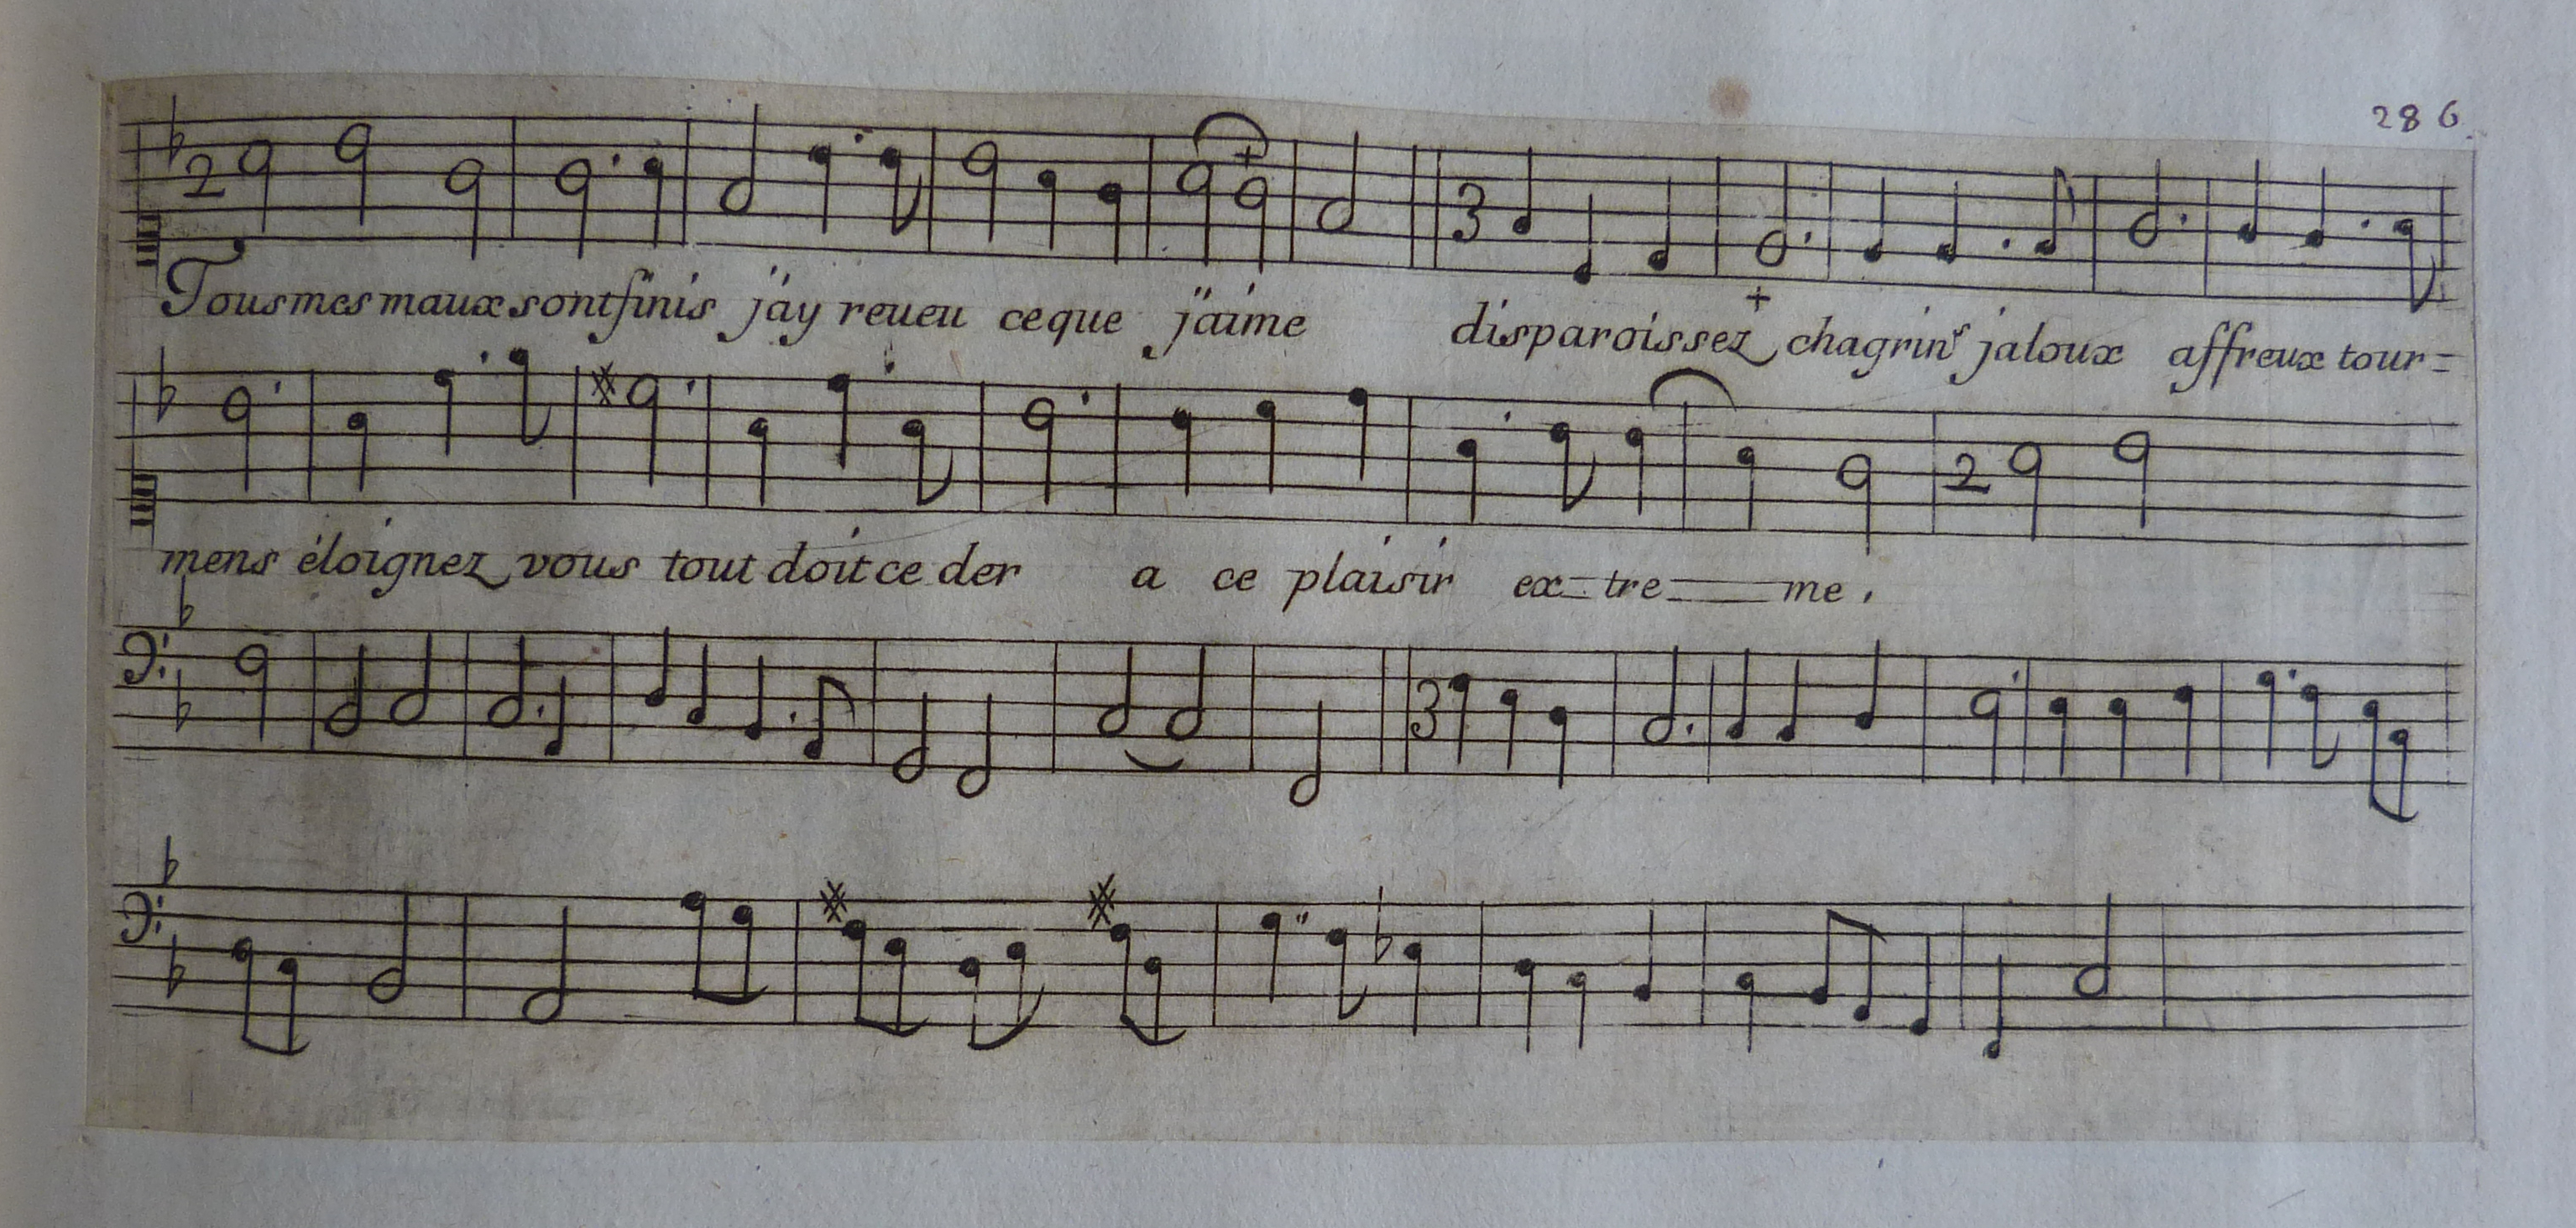 286
2 3
Tous mes maux sont finis j'ay reueu ce que j'aime disparoissez chagrins jaloux affreux tour=
2
mens éloignez vous tout doit ce der a ce plaisir ex=tre=me.
3